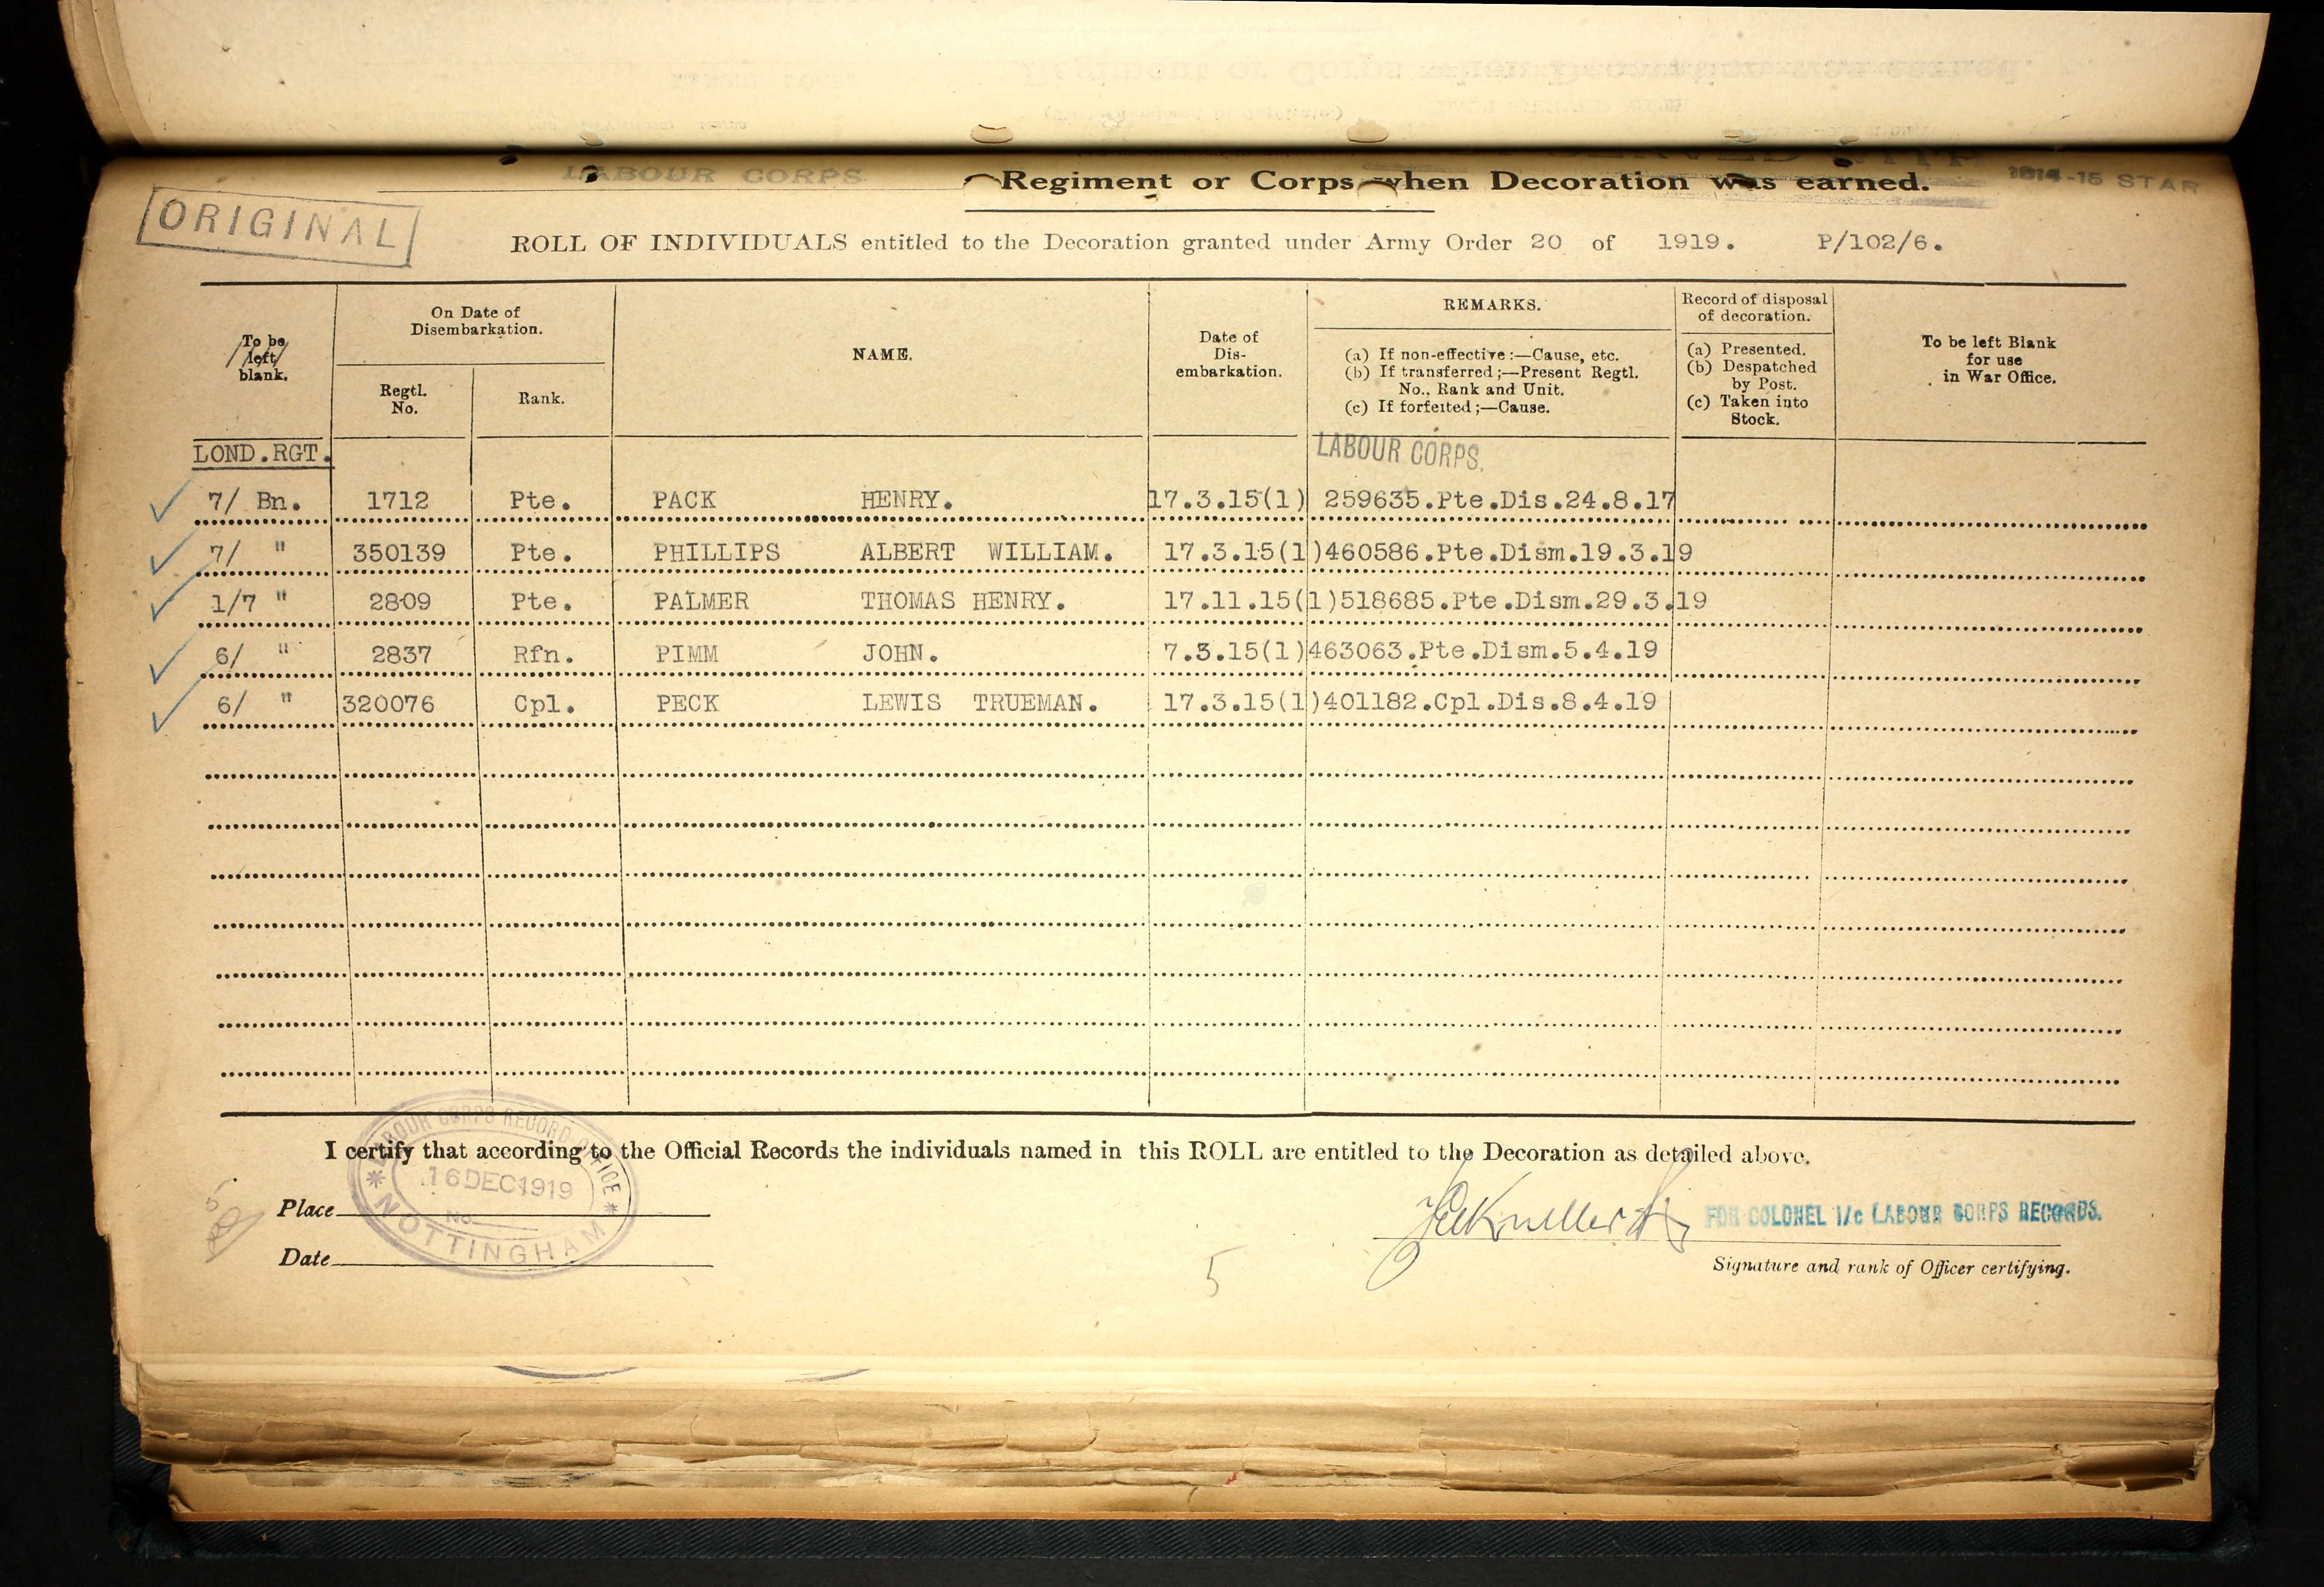 LABOUR CORPS
Regiment or Corps when Decoration was earned.
1914-15 STAR
ORIGINAL
ROLL OF INDIVIDUALS entitled to the Decoration granted under Army Order 20 of 1919. P/102/6.
To be left blank.
On Date of Disembarkation.
Regtl. No.
Rank.
NAME.
Date of Dis-embarkation.
REMARKS.
(a) If non-effective:—Cause, etc.
(b) If transferred;—Present Regtl. No., Rank and Unit.
(c) If forfeited;—Cause.
Record of disposal of decoration.
(a) Presented.
(b) Despatched by Post.
(c) Taken into Stock.
To be left Blank for use in War Office.
LOND.RGT. LABOUR CORPS.
7/ Bn. 1712 Pte. PACK HENRY. 17.3.15(1) 259635.Pte.Dis.24.8.17
7/ " 350139 Pte. PHILLIPS ALBERT WILLIAM. 17.3.15(1)460586.Pte.Dism.19.3.19
1/7 " 2809 Pte. PALMER THOMAS HENRY. 17.11.15(1)518685.Pte.Dism.29.3.19
6/ " 2837 Rfn. PIMM JOHN. 7.3.15(1)463063.Pte.Dism.5.4.19
6/ " 320076 Cpl. PECK LEWIS TRUEMAN. 17.3.15(1)401182.Cpl.Dis.8.4.19
I certify that according to the Official Records the individuals named in this ROLL are entitled to the Decoration as detailed above.
LABOUR CORPS RECORD OFFICE
16 DEC 1919
No.
NOTTINGHAM
Place
Date
FOR COLONEL i/c LABOUR CORPS RECORDS.
Signature and rank of Officer certifying.
5